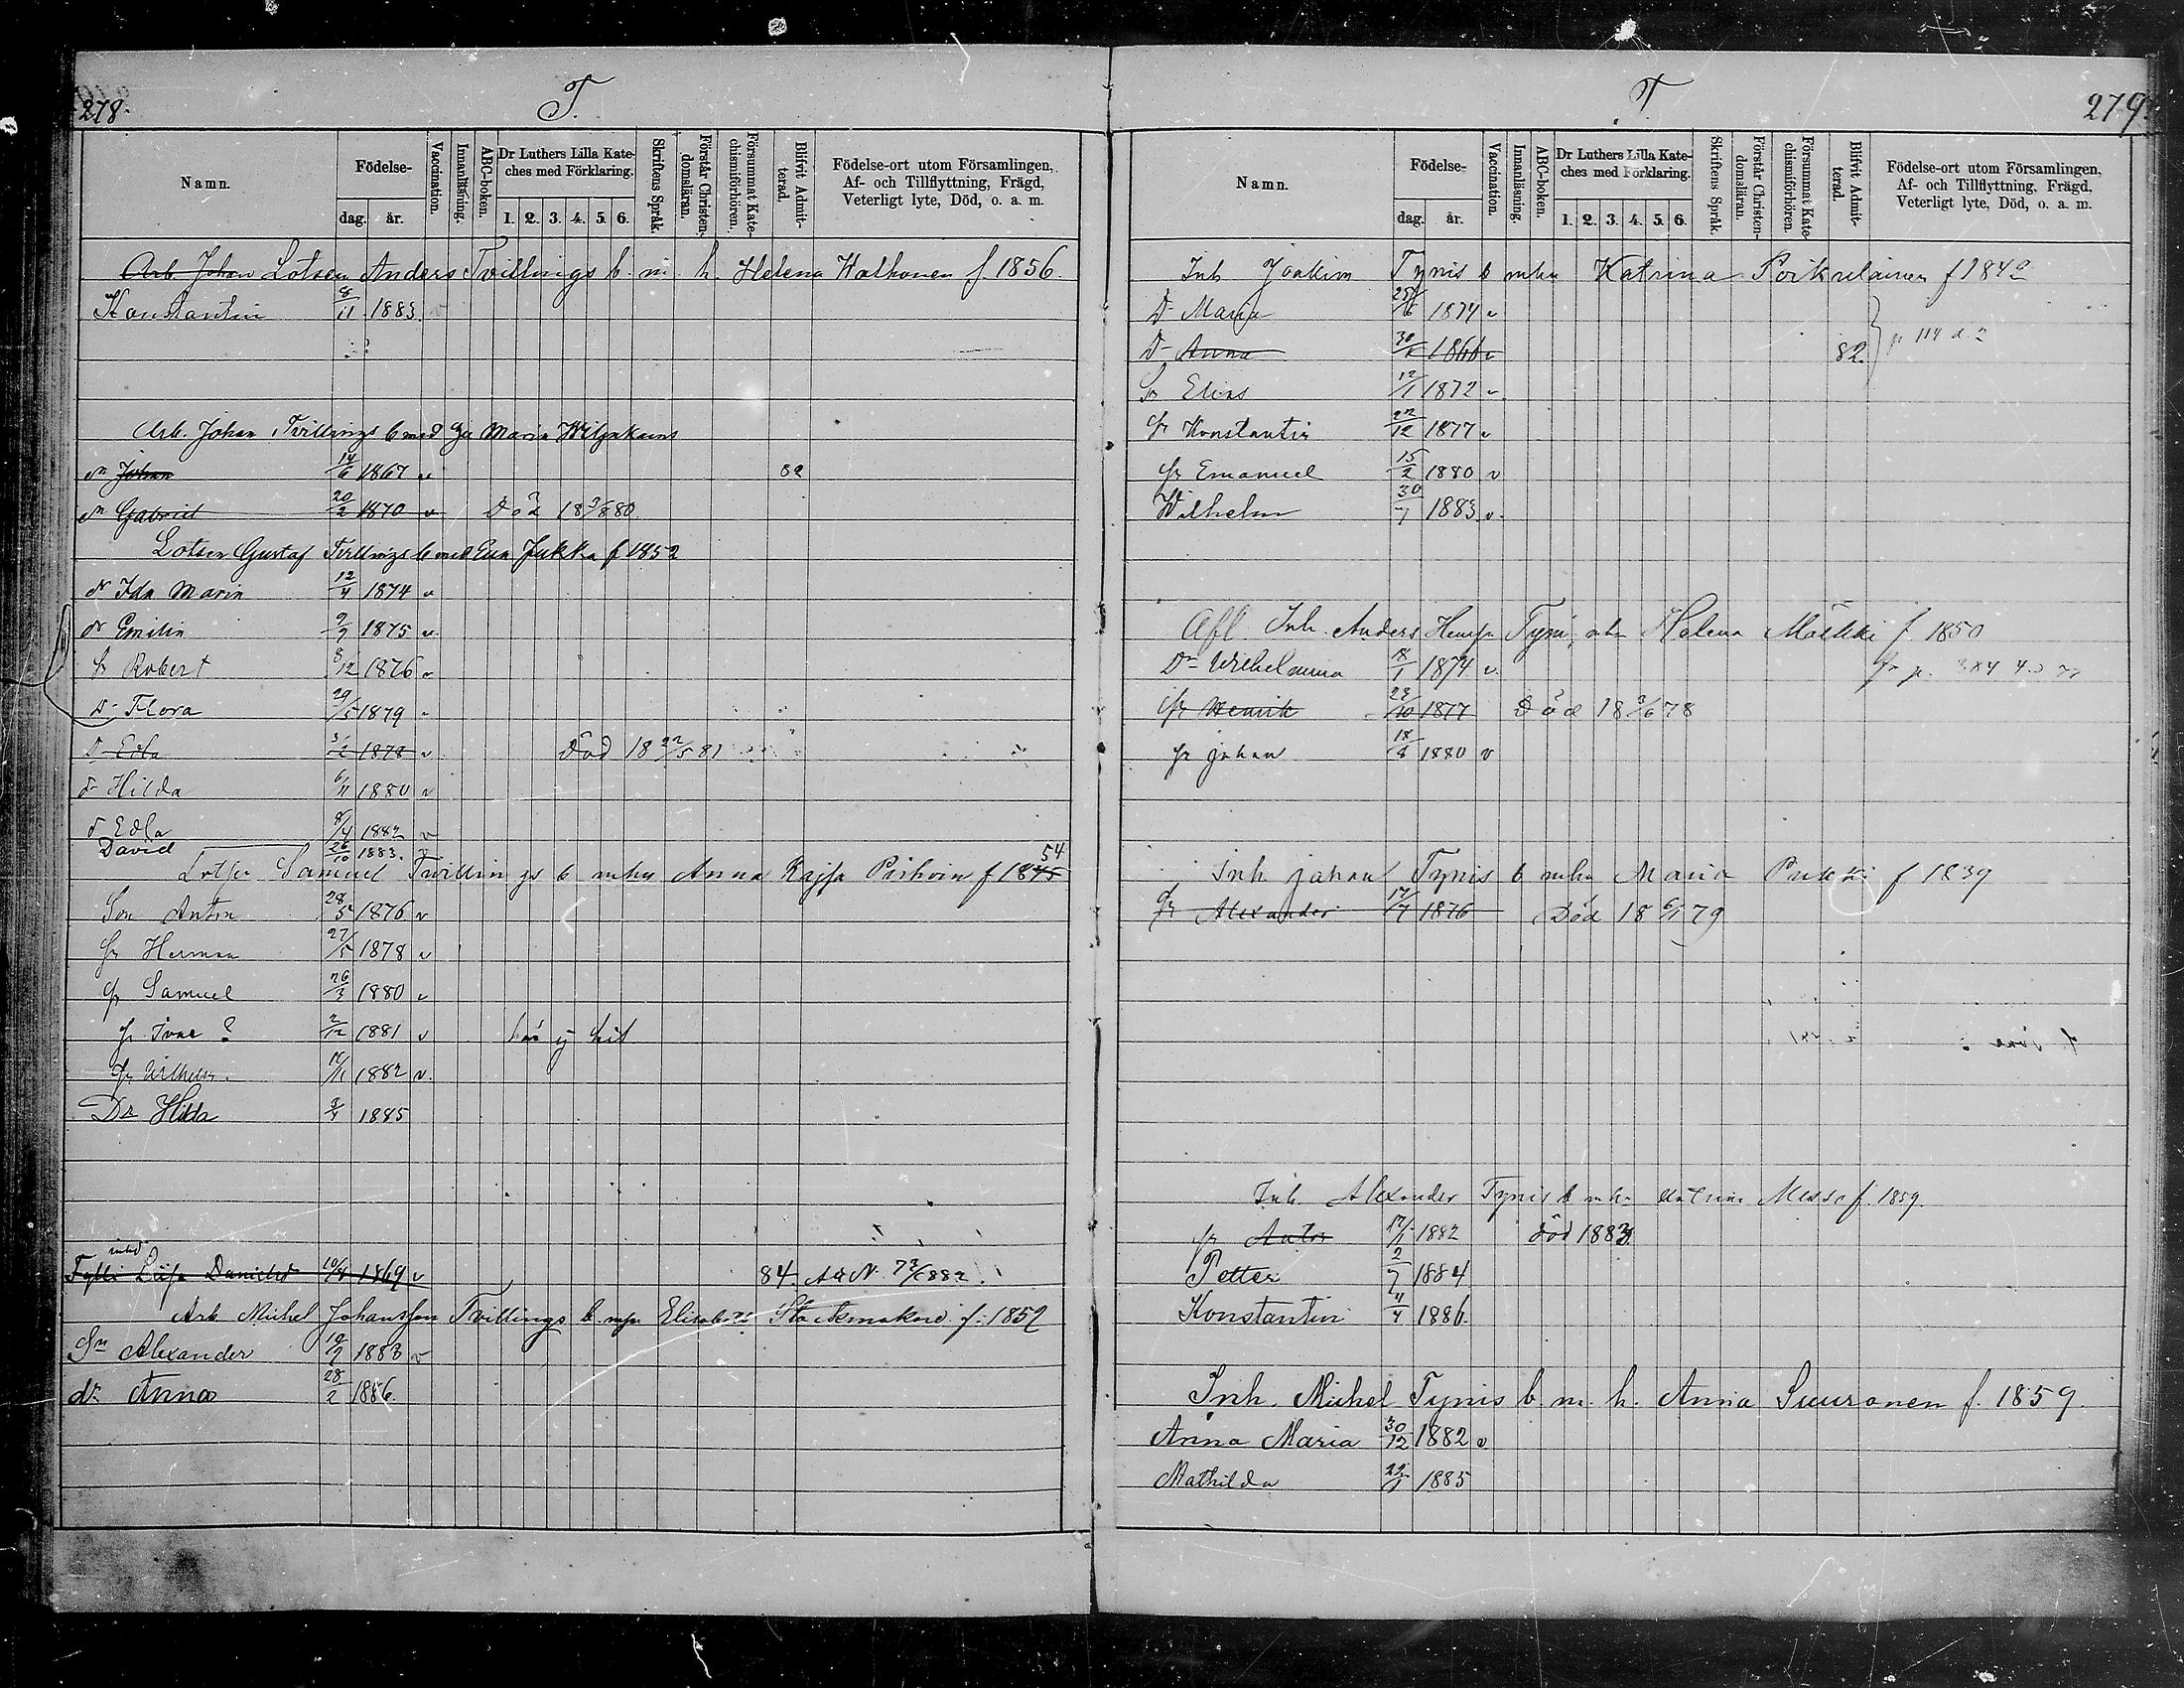 278.
T.
Namn.
Födelse-
dag.
år.
Vaccination.
Innanläsning.
ABC-boken.
Dr Luthers Lilla Kate-
ches med Förklaring.
1. 2. 3. 4. 5. 6.
Skriftens Språk.
Förstår Christen-
domsläran.
Försummat Kate-
chismiförhören.
Blifvit Admit-
terad.
Födelse-ort utom Församlingen,
Af- och Tillflyttning, Frägd,
Veterligt lyte, Död, o. a. m.
Arb Johan Lotsen Anders Tvillings b. m. h. Helena Hathonen f. 1856.
Konstantin 8/11 1883.
Arb. Johan Tvillings b med Maria
Johan 14/6 1867 v 82
Gabriel 20/2 1870 v Död 18 3/8 80
Lotsen Gustaf Tvillings b med Eva Jukka f 1852
dr Ida Maria 12/4 1874 v
dr Emilia 9/7 1875 v.
Robert 8/12 1876 v
Dr Flora 29/5 1879
Dr Edla 1878 v Död 18 22/5 81
dr Hilda 6/11 1880 v
d Edla 8/4 1882 v
David 26/10 1883. v
Samuel Tvillings b mhu Anna Kajsa f 1845 54
Son Anton 28/5 1876 v
Herman 27/5 1878 v
Samuel 26/3 1880 v
Ivar ? 2/12 1881 v ej hit
Wilhelm. 1882 v.
Dr Hilda 1885
Danielsd 10/4 1869 v 84.
Arb Michel Johansson Tvillings b. Elisabeth f. 1852
Sn Alexander 19/7 1883 v
dr Anna 28/2 1886.
T.
279.
Namn.
Födelse-
dag.
år.
Vaccination.
Innanläsning.
ABC-boken.
Dr Luthers Lilla Kate-
ches med Förklaring.
1. 2. 3. 4. 5. 6.
Skriftens Språk.
Förstår Christen-
domsläran.
Försummat Kate-
chismiförhören.
Blifvit Admit-
terad.
Födelse-ort utom Församlingen,
Af- och Tillflyttning, Frägd,
Veterligt lyte, Död, o. a. m.
Inh Joakim Tynis b mhu Katrina Poikselainen f 1840
Dr Maria 25/6 1874 v
Dr Anna 1866 v 82.
Elias 12/1 1872 v
Konstantin 22/12 1877 v
Emanuel 15/2 1880 v
Wilhelm 30/7 1883 v.
Afl. Inh. Anders Tyni, Helena f 1850
Dr Wilhelmina 18/1 1874 v.
Henrik 1877 Död 18 78
johan 18/8 1880 v
Inh johan Tynis b mhu Maria Pukki f 1839
Alexander 17/7 1876 Död 18 6/1 79
Inh. Alexander Tynis b mhu f. 1859.
Anton 1882 död 1883
Petter 2/7 1884
Konstantin 4/4 1886.
Inh. Michel Tynis b. m. h. Anna Suuronen f. 1859.
Anna Maria 30/12 1882 v
Mathilda 1885